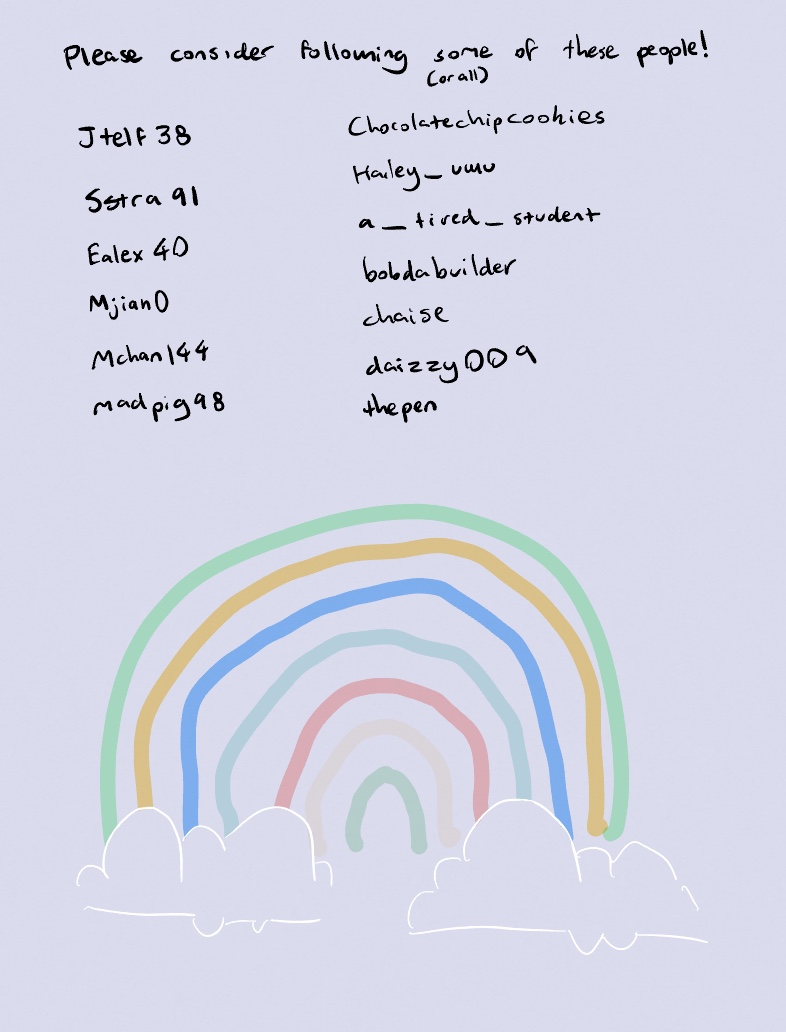 Please consider following some of these people!
(or all)
Jtelf 38
Sstra 91
Ealex 40
Mjian0
Mchan144
madpig98
Chocolatechipcookies
Hailey_uwu
a_tired_student
bobdabuilder
chaise
daizzy009
thepen